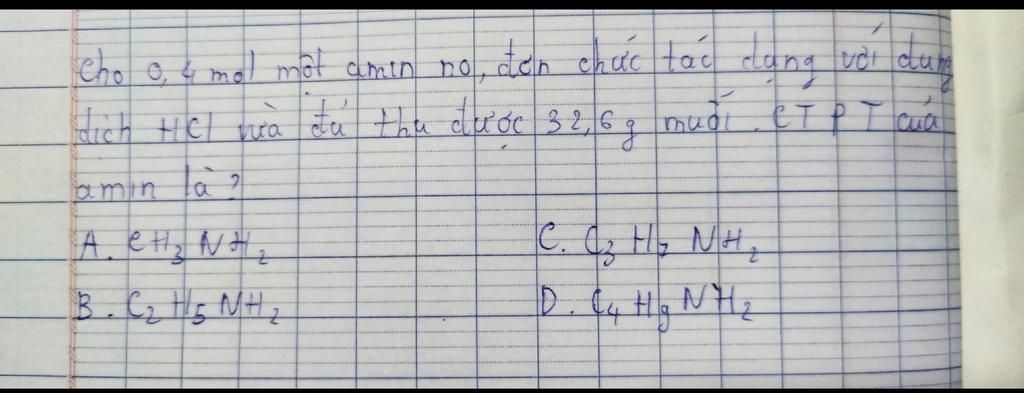 Cho 0,4 mol một amin no, đơn chức tác dụng với dung
dịch HCl vừa đủ thu được 32,6 g muối. CTPT của
amin là?
A. CH₃NH₂ C. C₃H₇NH₂
B. C₂H₅NH₂ D. C₄H₉NH₂